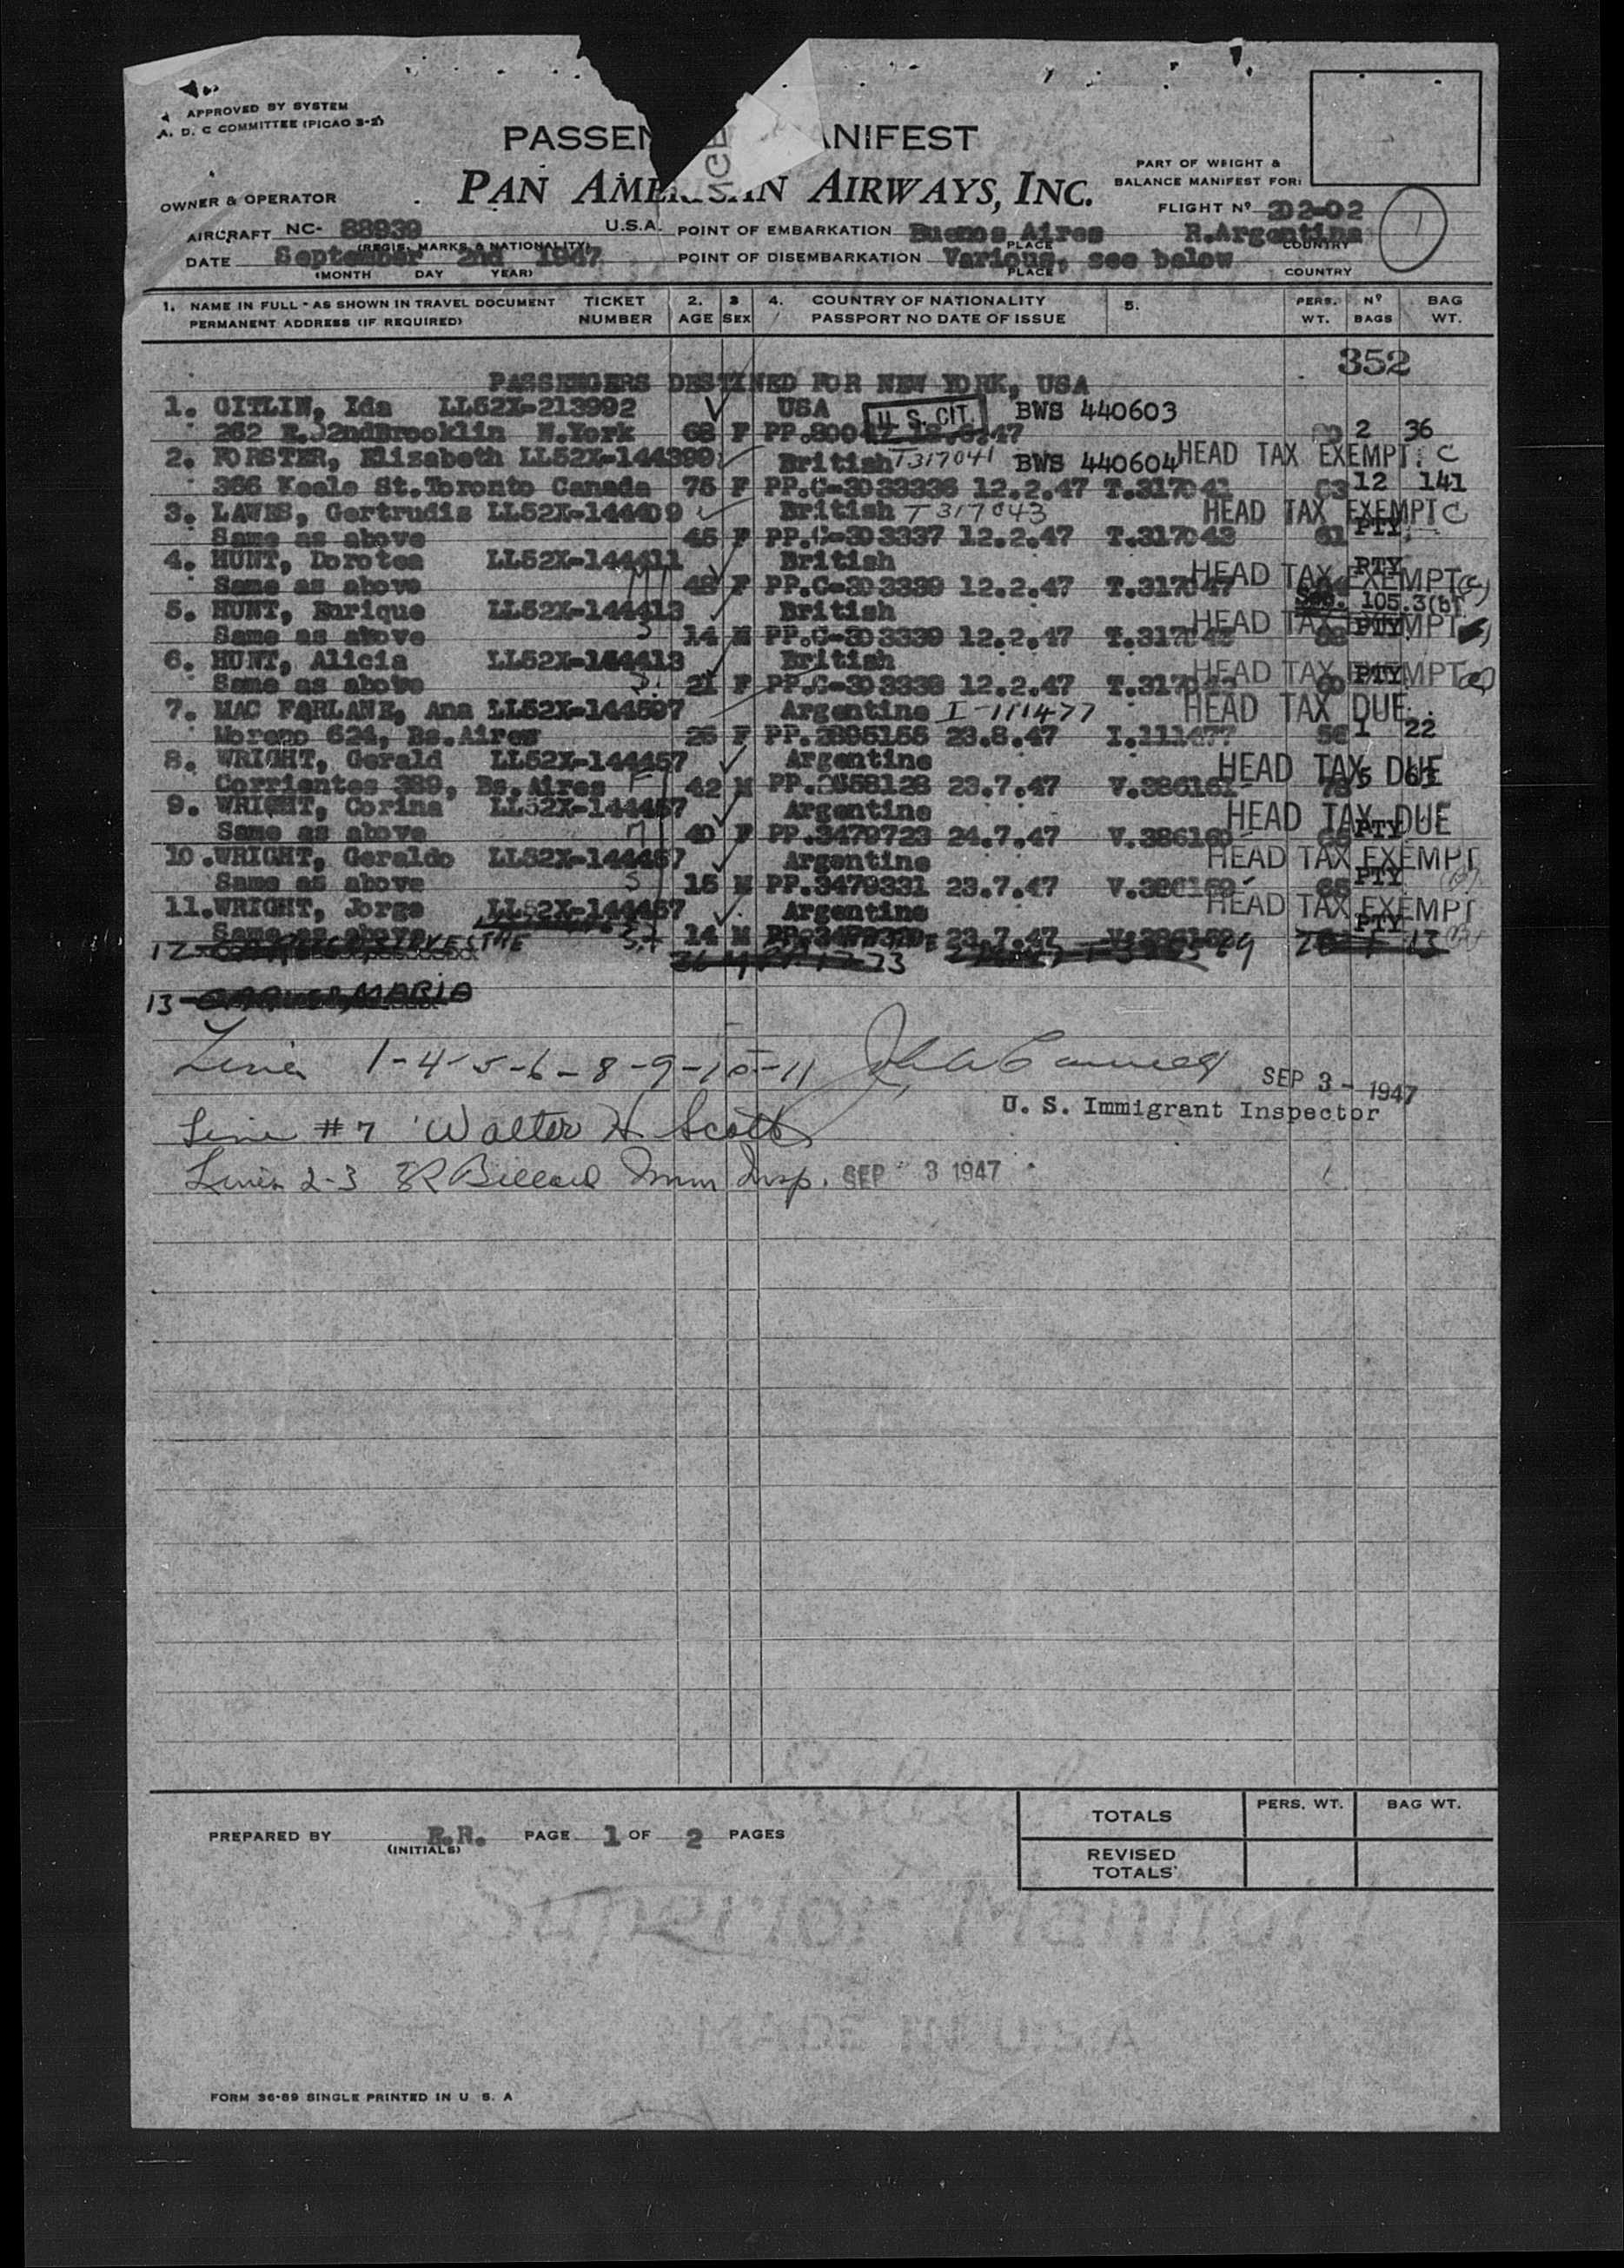 APPROVED BY SYSTEM
A. D. C COMMITTEE (PICAO 3-2)
PASSEN ANIFEST
PAN AMERICAN AIRWAYS, INC.
PART OF WEIGHT &
BALANCE MANIFEST FOR:
OWNER & OPERATOR
FLIGHT Nº 202-02
1
AIRCRAFT NC- 88939 U.S.A. POINT OF EMBARKATION Buenos Aires R.Argentina
(REGIS. MARKS & NATIONALITY) PLACE COUNTRY
DATE September 2nd 1947 POINT OF DISEMBARKATION Various, see below
(MONTH DAY YEAR) PLACE COUNTRY
1. NAME IN FULL - AS SHOWN IN TRAVEL DOCUMENT TICKET 2. 3 4. COUNTRY OF NATIONALITY 5. PERS. Nº BAG
PERMANENT ADDRESS (IF REQUIRED) NUMBER AGE SEX PASSPORT NO DATE OF ISSUE WT. BAGS WT.
352
PASSENGERS DESTINED FOR NEW YORK, USA
1. GITLIN, Ida LL52X-213992 USA U.S. CIT. BWS 440603
262 E. 2ndBrooklin N.York 68 F 2 36
2. FORSTER, Elizabeth LL52X-144399 British T317041 BWS 440604 HEAD TAX EXEMPT C
366 Keele St.Toronto Canada 75 F PP.C-303336 12.2.47 T.317041 12 141
3. LAWES, Gertrudis LL52X-144409 British T317043 HEAD TAX EXEMPT C
Same as above 45 F PP.C-303337 12.2.47 T.317043 61 PTY
4. HUNT, Dorotea LL52X-144411 British PTY
Same as above M 48 F PP.C-303339 12.2.47 T.317047 HEAD TAX EXEMPT (c)
5. HUNT, Enrique LL52X-144413 British Sec. 105.3(b)
Same as above S 14 M PP.C-303339 12.2.47 HEAD TAX EXEMPT PTY
6. HUNT, Alicia LL52X-144413 British HEAD TAX EXEMPT
Same as above S. 21 F PP.C-303338 12.2.47 PTY
7. MAC FARLANE, Ana LL52X-144597 Argentine I-111477 HEAD TAX DUE
Moreno 624, Bs.Aires F PP.2895156 23.8.47 I.111477 1 22
8. WRIGHT, Gerald LL52X-144457 Argentine HEAD TAX DUE
Corrientes 389, Bs.Aires 42 M 23.7.47 V.386161 5
9. WRIGHT, Corina LL52X-144457 Argentine HEAD TAX DUE
Same as above M 40 F PP.3479723 24.7.47 V.386160 PTY
10.WRIGHT, Geraldo LL52X-144457 Argentine HEAD TAX EXEMPT
Same as above S 15 M PP.3479331 23.7.47 V.386159 PTY
11.WRIGHT, Jorge LL52X-144457 Argentine HEAD TAX EXEMPT
Same as above S 14 M 23.7.47 PTY
12-
13- MARIA
Lines 1-4-5-6-8-9-10-11 SEP 3 - 1947
U. S. Immigrant Inspector
Line #7 Walter H. Scott
Lines 2-3 Imm Insp. SEP 3 1947
TOTALS PERS. WT. BAG WT.
PREPARED BY PAGE 1 OF 2 PAGES
(INITIALS)
REVISED
TOTALS
FORM 36-89 SINGLE PRINTED IN U S. A